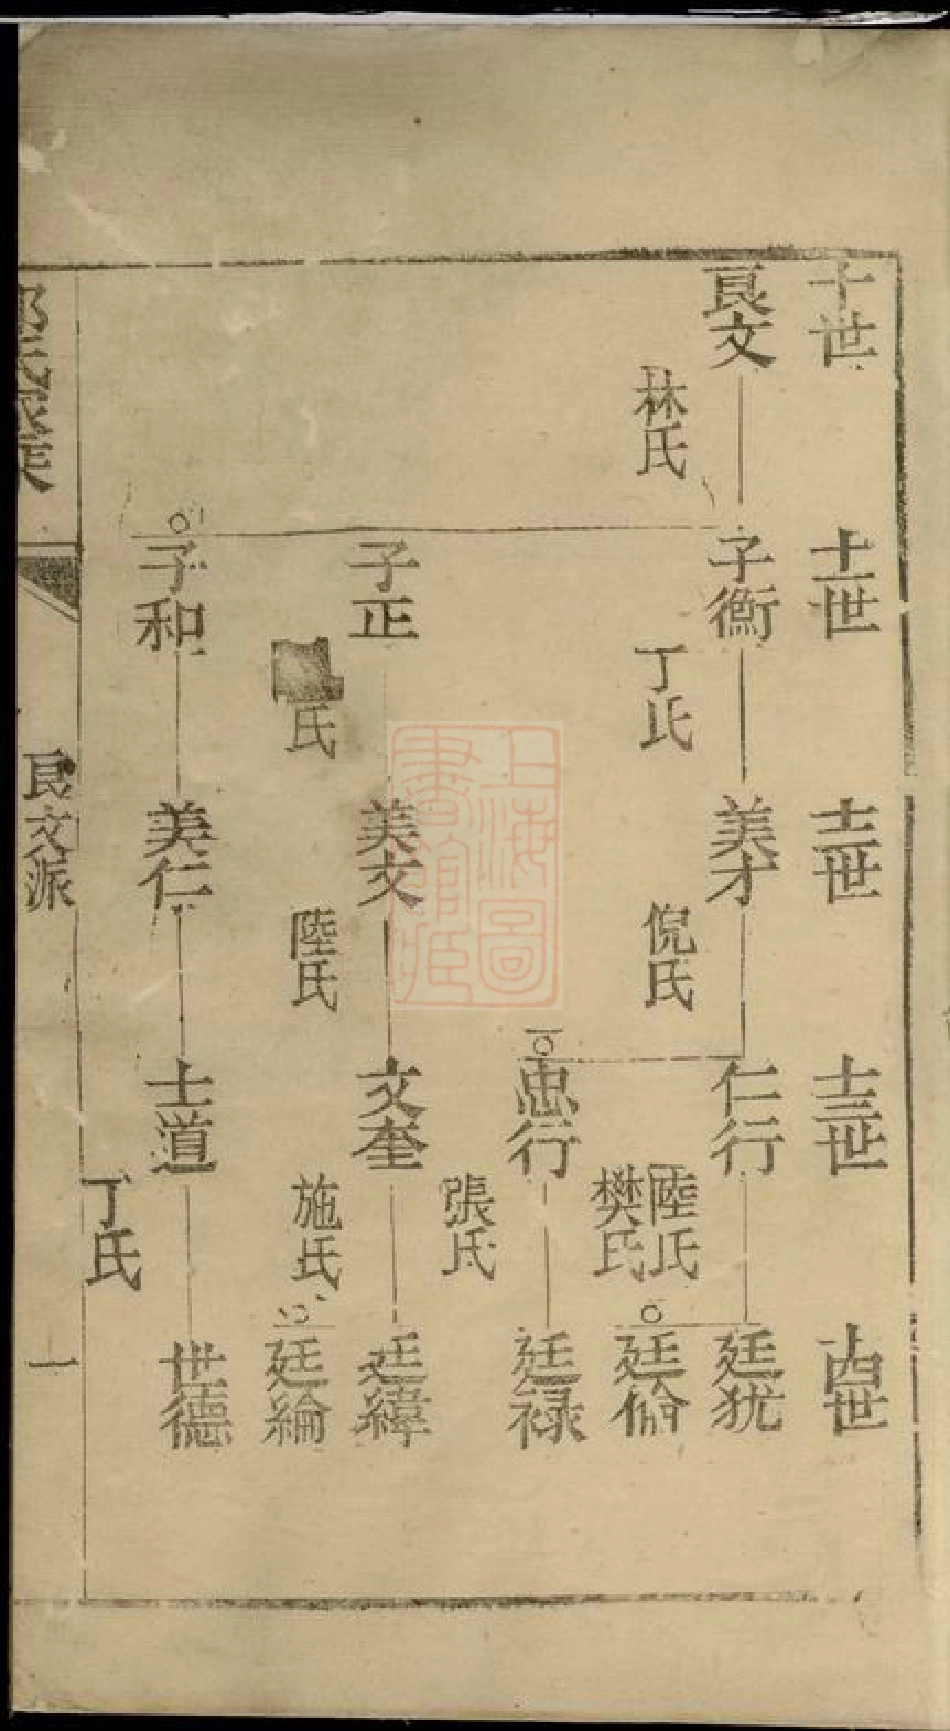 十世
十一世
十二世
十三世
十四世
良文
子衡
美才
仁行
廷犹
林氏
丁氏
倪氏
陸氏
樊氏
廷倫
忠行
廷禄
張氏
子正
美文
文奎
廷緯
氏
陸氏
施氏
廷綸
子和
美仁
士道
世德
丁氏
良文派
一
上海圖
書館藏